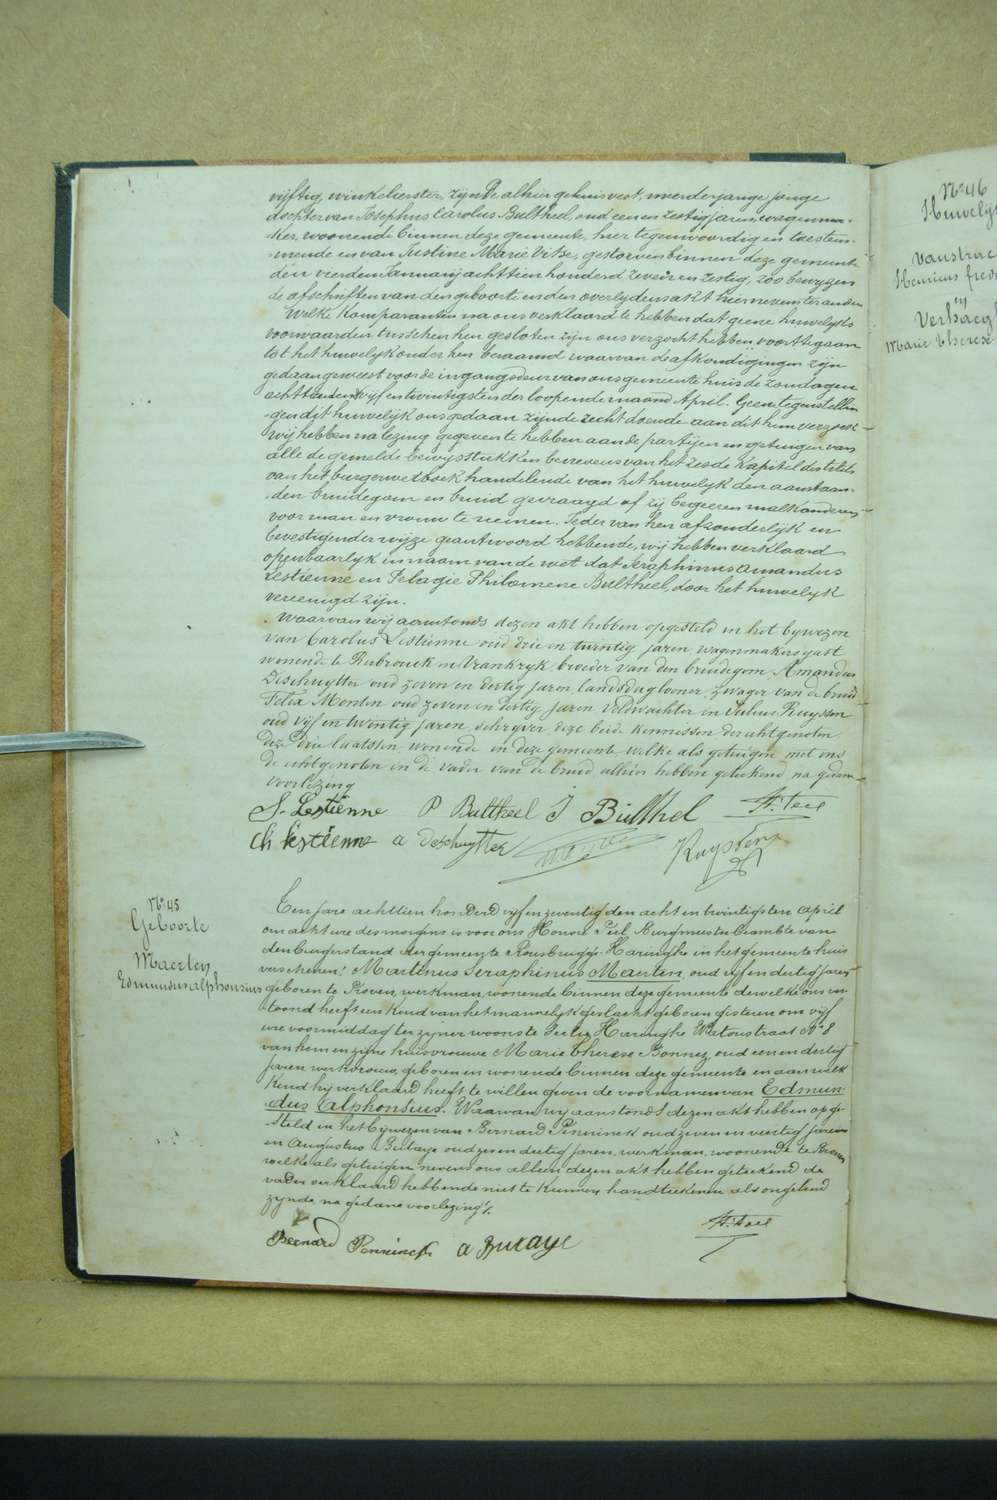 vijftig, winkelierster, zijnde alhier gehuisvest, meerderjarige jonge
dochter van Josephus Carolus Bultheel, oud een en zestig jaren, wagenma-
ker, woonende binnen deze gemeente, hier tegenwoordig en toestem-
mende en van Justine Marie Vitse, gestorven binnen deze gemeente
den vierden January achttien honderd twee en zestig, zoo bewyzen
de afschriften van den geboorte en den overlydens akt hiernevens
Welke komparanten na ons verklaard te hebben dat geene huwelyks
voorwaarden tusschen hen gesloten zyn ons verzocht hebben voort te gaan
tot het huwelyk onder hen beraamd waarvan de afkondigingen zyn
gedaan geweest voor de ingangsdeur van ons gemeentehuis de zondagen
achttien en vyf en twintigsten der loopende maand April. Geen tegenstellin
gen dit huwelyk ons gedaan zijnde recht doende aan dit hun verzoek
wij hebben na lezing gegeven te hebben aan de partijen en getuigen van
alle de gemelde bewysstukken benevens van het zesde kapittel des titels
van het burgerwetboek handelende van het huwelyk den aanstaan-
den bruidegom en bruid gevraagd of zy begeeren malkanderen
voor man en vrouw te nemen. Ieder van hen afzonderlyk en
bevestigender wijze geantwoord hebbende, wij hebben verklaard
openbaarlyk in naam van de wet dat Seraphinus Amandus
Lestienne en Pelagie Philomene Bultheel, door het huwelyk
vereenigd zijn.
Waarvan wij aanstonds dezen akt hebben opgesteld in het bywezen
van Carolus Lestienne oud drie en twintig jaren wagenmakersgast
wonende te Rubrouck in Vrankryk broeder van den bruidegom Amandus
Deschuytter oud zeven en dertig jaren, landsdagloner, zwager van de bruid
Felix oud zeven en dertig jaren veldwachter en Julius Ruyssen
oud vijf en twintig jaren, schryver deze beide kennissen der echtgenoten
deze drie laatsten wonende in deze gemeente welke als getuigen met ons
de echtgenoten en de vader van de bruid alhier hebben geteekend na gedane
voorlezing
S. Lestienne P Bultheel J Bulthel
Ch lestienne a deschuytter Ruyssen
N° 45
Geboorte
Maerten
Edmundus alphonsius
Een jare achttien honderd vyf en zeventig den acht en twintigsten april
om acht ure des morgens is voor ons Honoré Piel Burgmeester Ambte van
den burgerstand der gemeente Rousbrugge Haringhe in het gemeente huis
verschenen: Martinus Seraphinus Maerten, oud vyf en dertig jaren
geboren te Proven, werkman, wonende binnen deze gemeente dewelke ons ver-
toond heeft een kind van het mannelyk geslacht geboren gisteren om vyf
ure voormiddag ter zyner woonste Sectie Haringhe Watoustraat N° 8
van hem en zyne huisvrouwe Marie Therese Bonnez, oud een en dertig
jaren, werkvrouw, geboren en wonende binnen deze gemeente en aan welk
kind hy verklaard heeft te willen geven de voornamen van Edmun-
dus Alphonsius. Waarvan wy aanstonds dezen akt hebben opge-
steld in het bywezen van Bernard Penninck oud zeven en veertig jaren
en Augustus oud zes en dertig jaren, werkman, woonende te Proven
welke als getuigen nevens ons alleen dezen akt hebben geteekend de
vader verklaard hebbende niet te kunnen handteekenen als ongeleerd
zynde na gedane voorlezing.
Beernard Penninck
N° 46
Huwelyk
en
Marie Therese